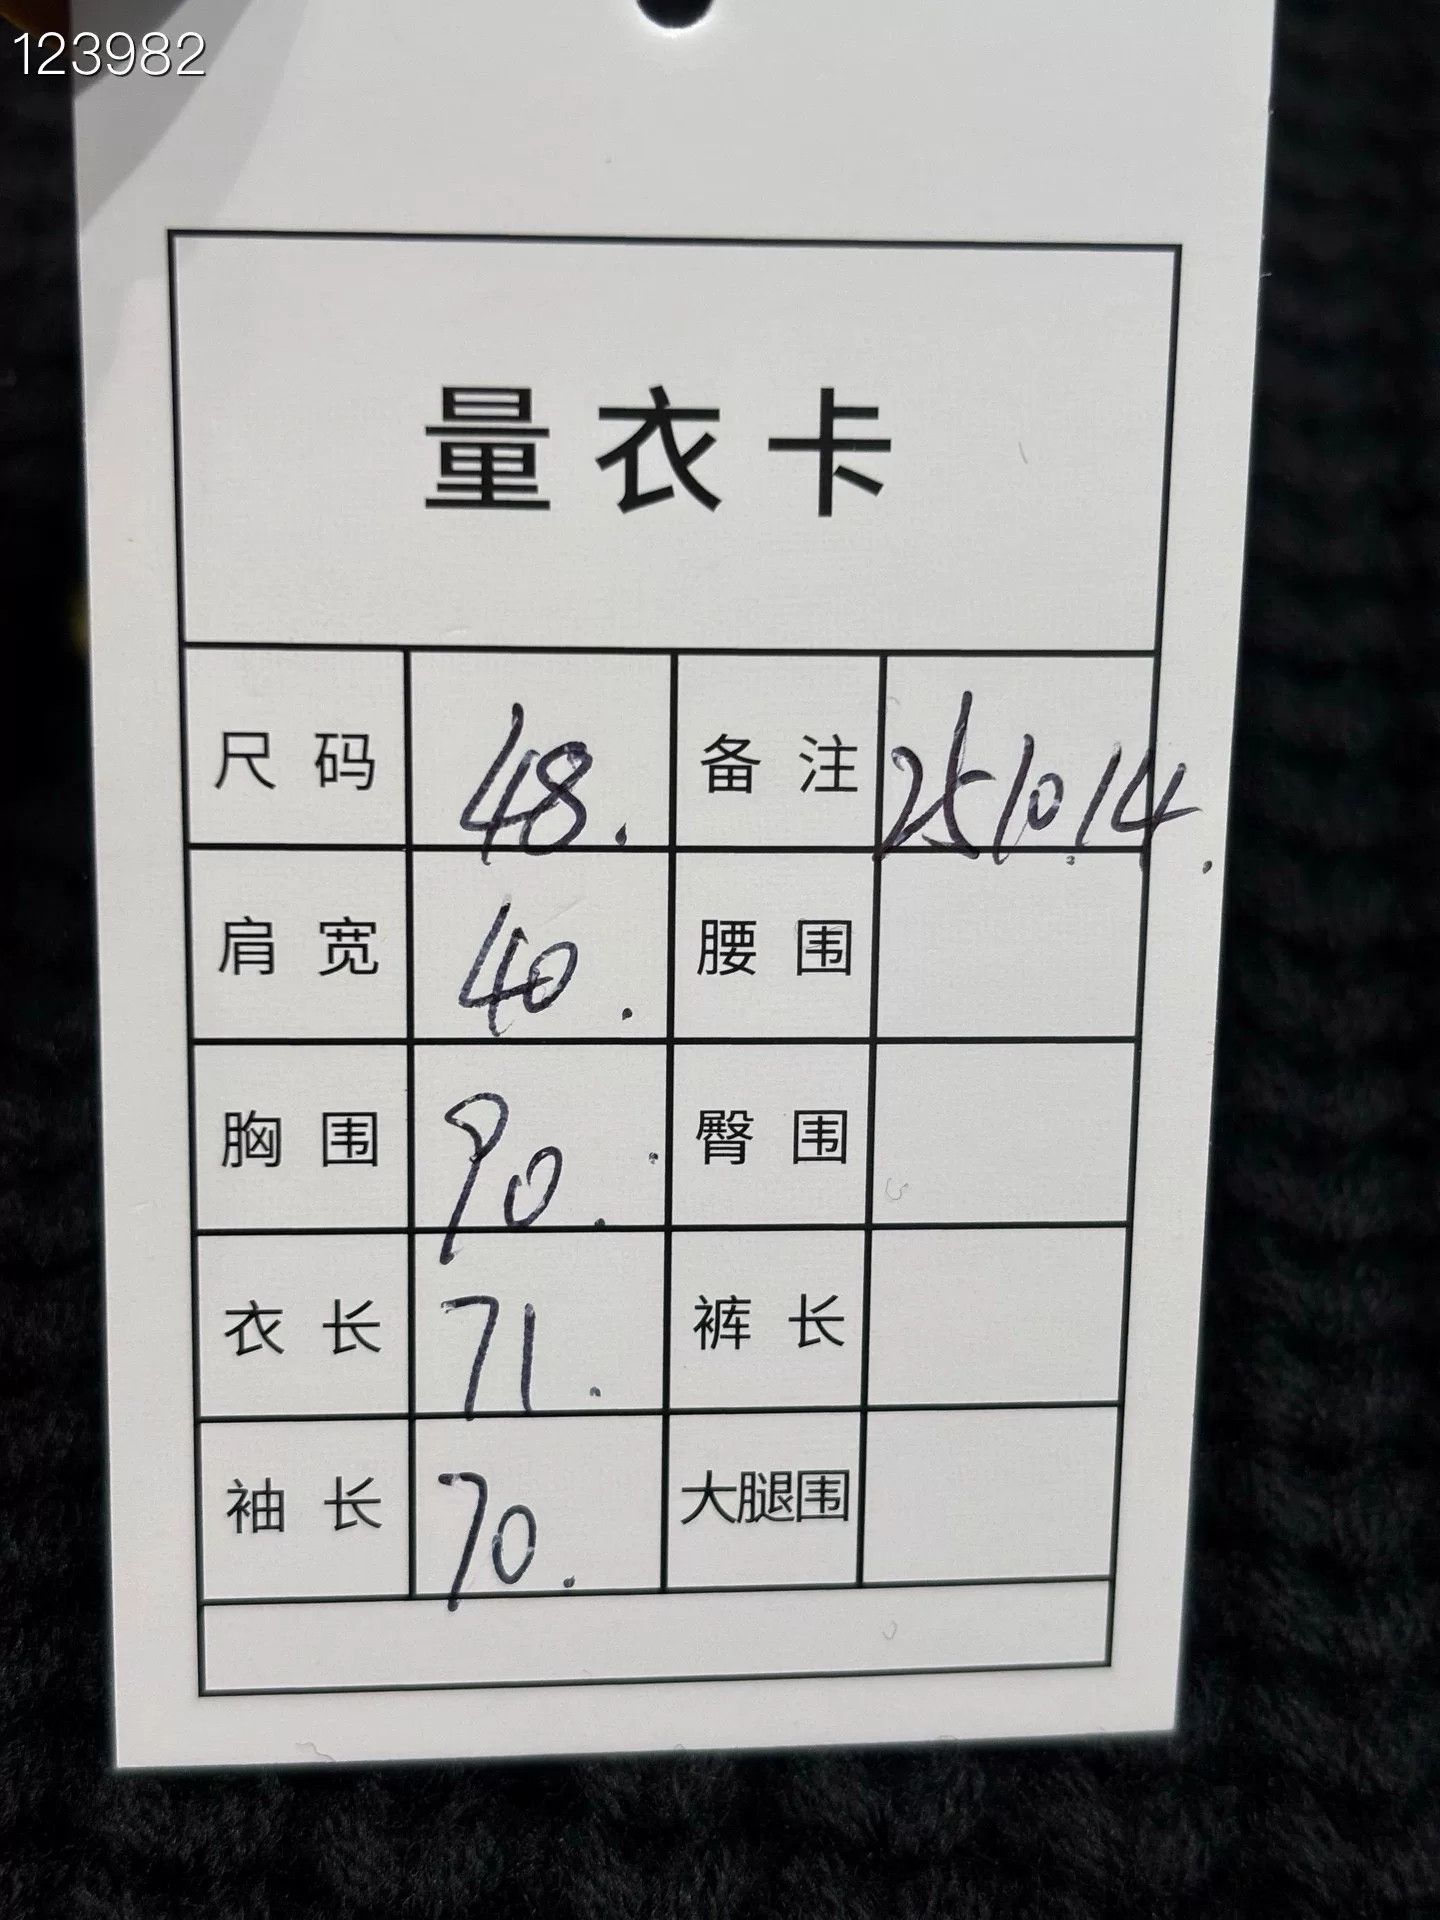 123982
量衣卡
尺码 48. 备注 251014.
肩宽 40. 腰围
胸围 90. 臀围
衣长 71. 裤长
袖长 70. 大腿围